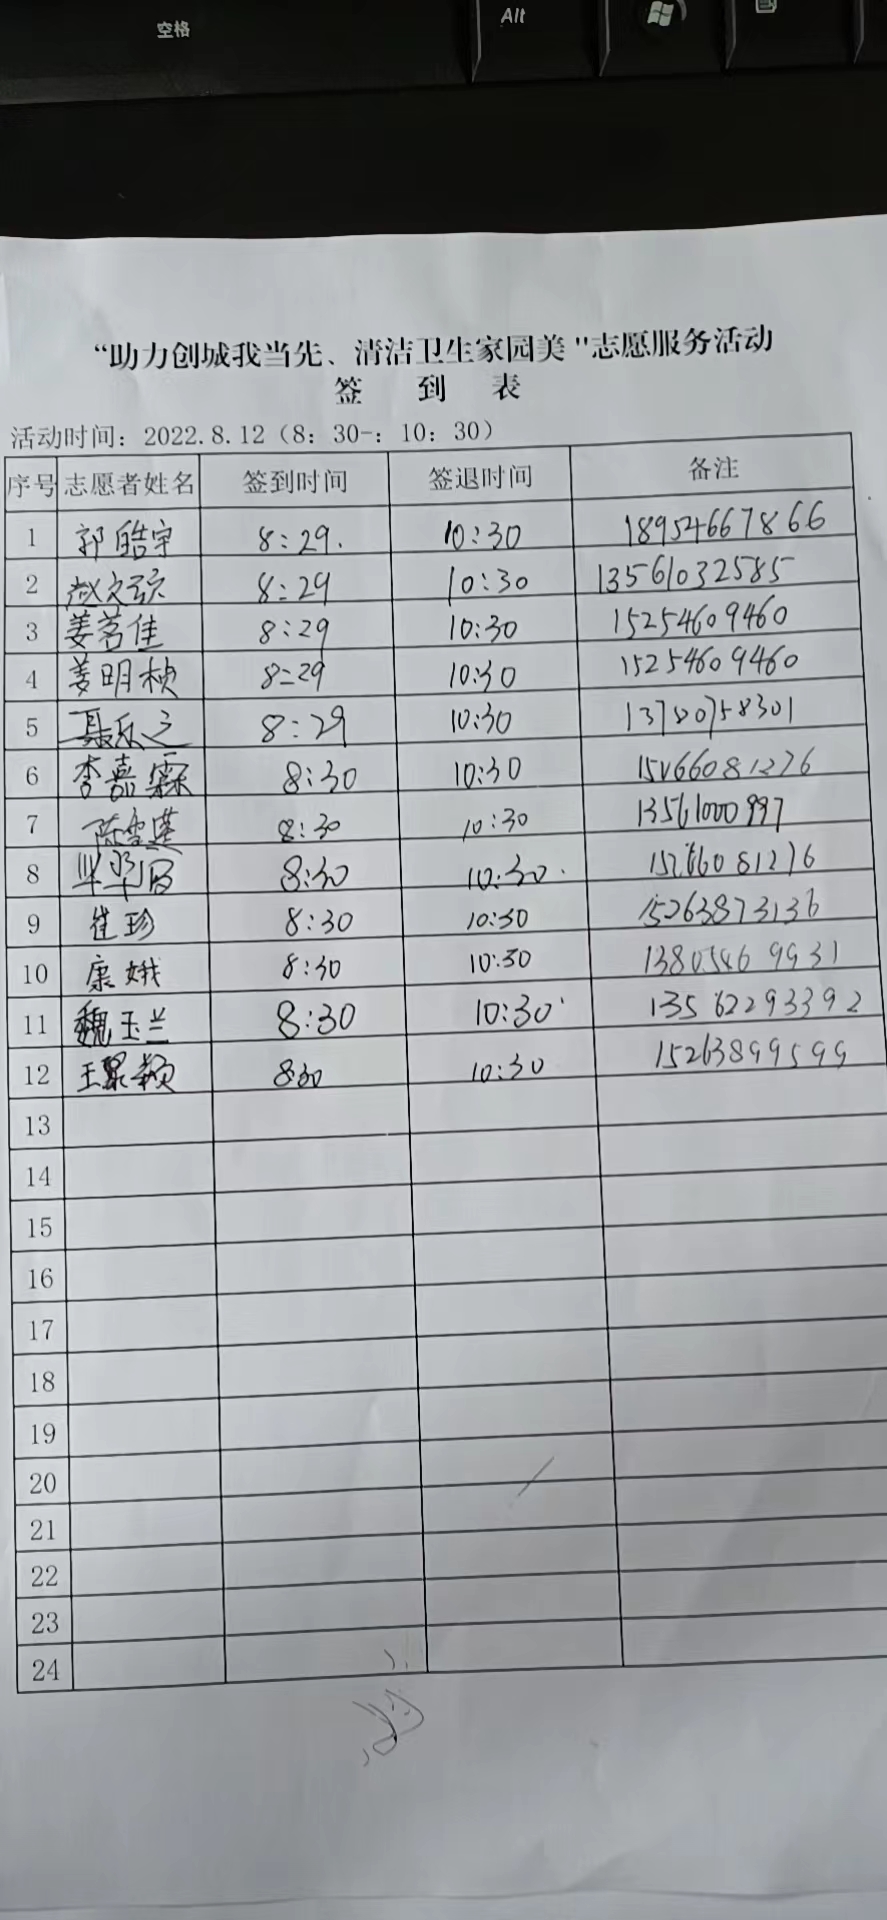 空格
Alt
“助力创城我当先、清洁卫生家园美"志愿服务活动
签 到 表
活动时间：2022.8.12（8：30-：10：30）
序号 志愿者姓名 签到时间 签退时间 备注
1 郭皓宇 8:29. 10:30 18954667866
2 赵文 8:29 10:30 13561032585
3 姜茗佳 8:29 10:30 15254609460
4 姜明桢 8:29 10:30 15254609460
5 聂乐之 8:29 10:30 13780758301
6 李嘉霖 8:30 10:30
7 陈雪莲 8:30 10:30 13561000997
8 8:30 10:30.
9 崔珍 8:30 10:30 15263873136
10 康娥 8:30 10:30 13805469931
11 魏玉兰 8:30 10:30 13562293392
12 王 颖 830 10:30 15263899599
13
14
15
16
17
18
19
20
21
22
23
24